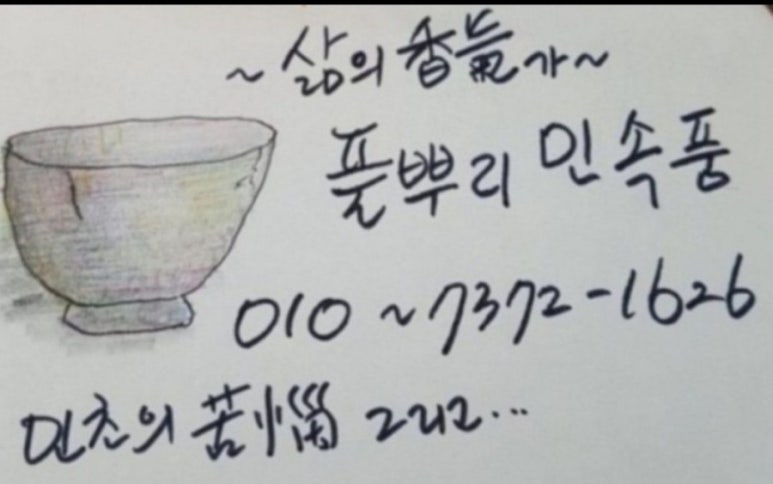 ~삶의 香氣가~
풀뿌리 민속품
010~7372-1626
민초의 苦惱 그리고...